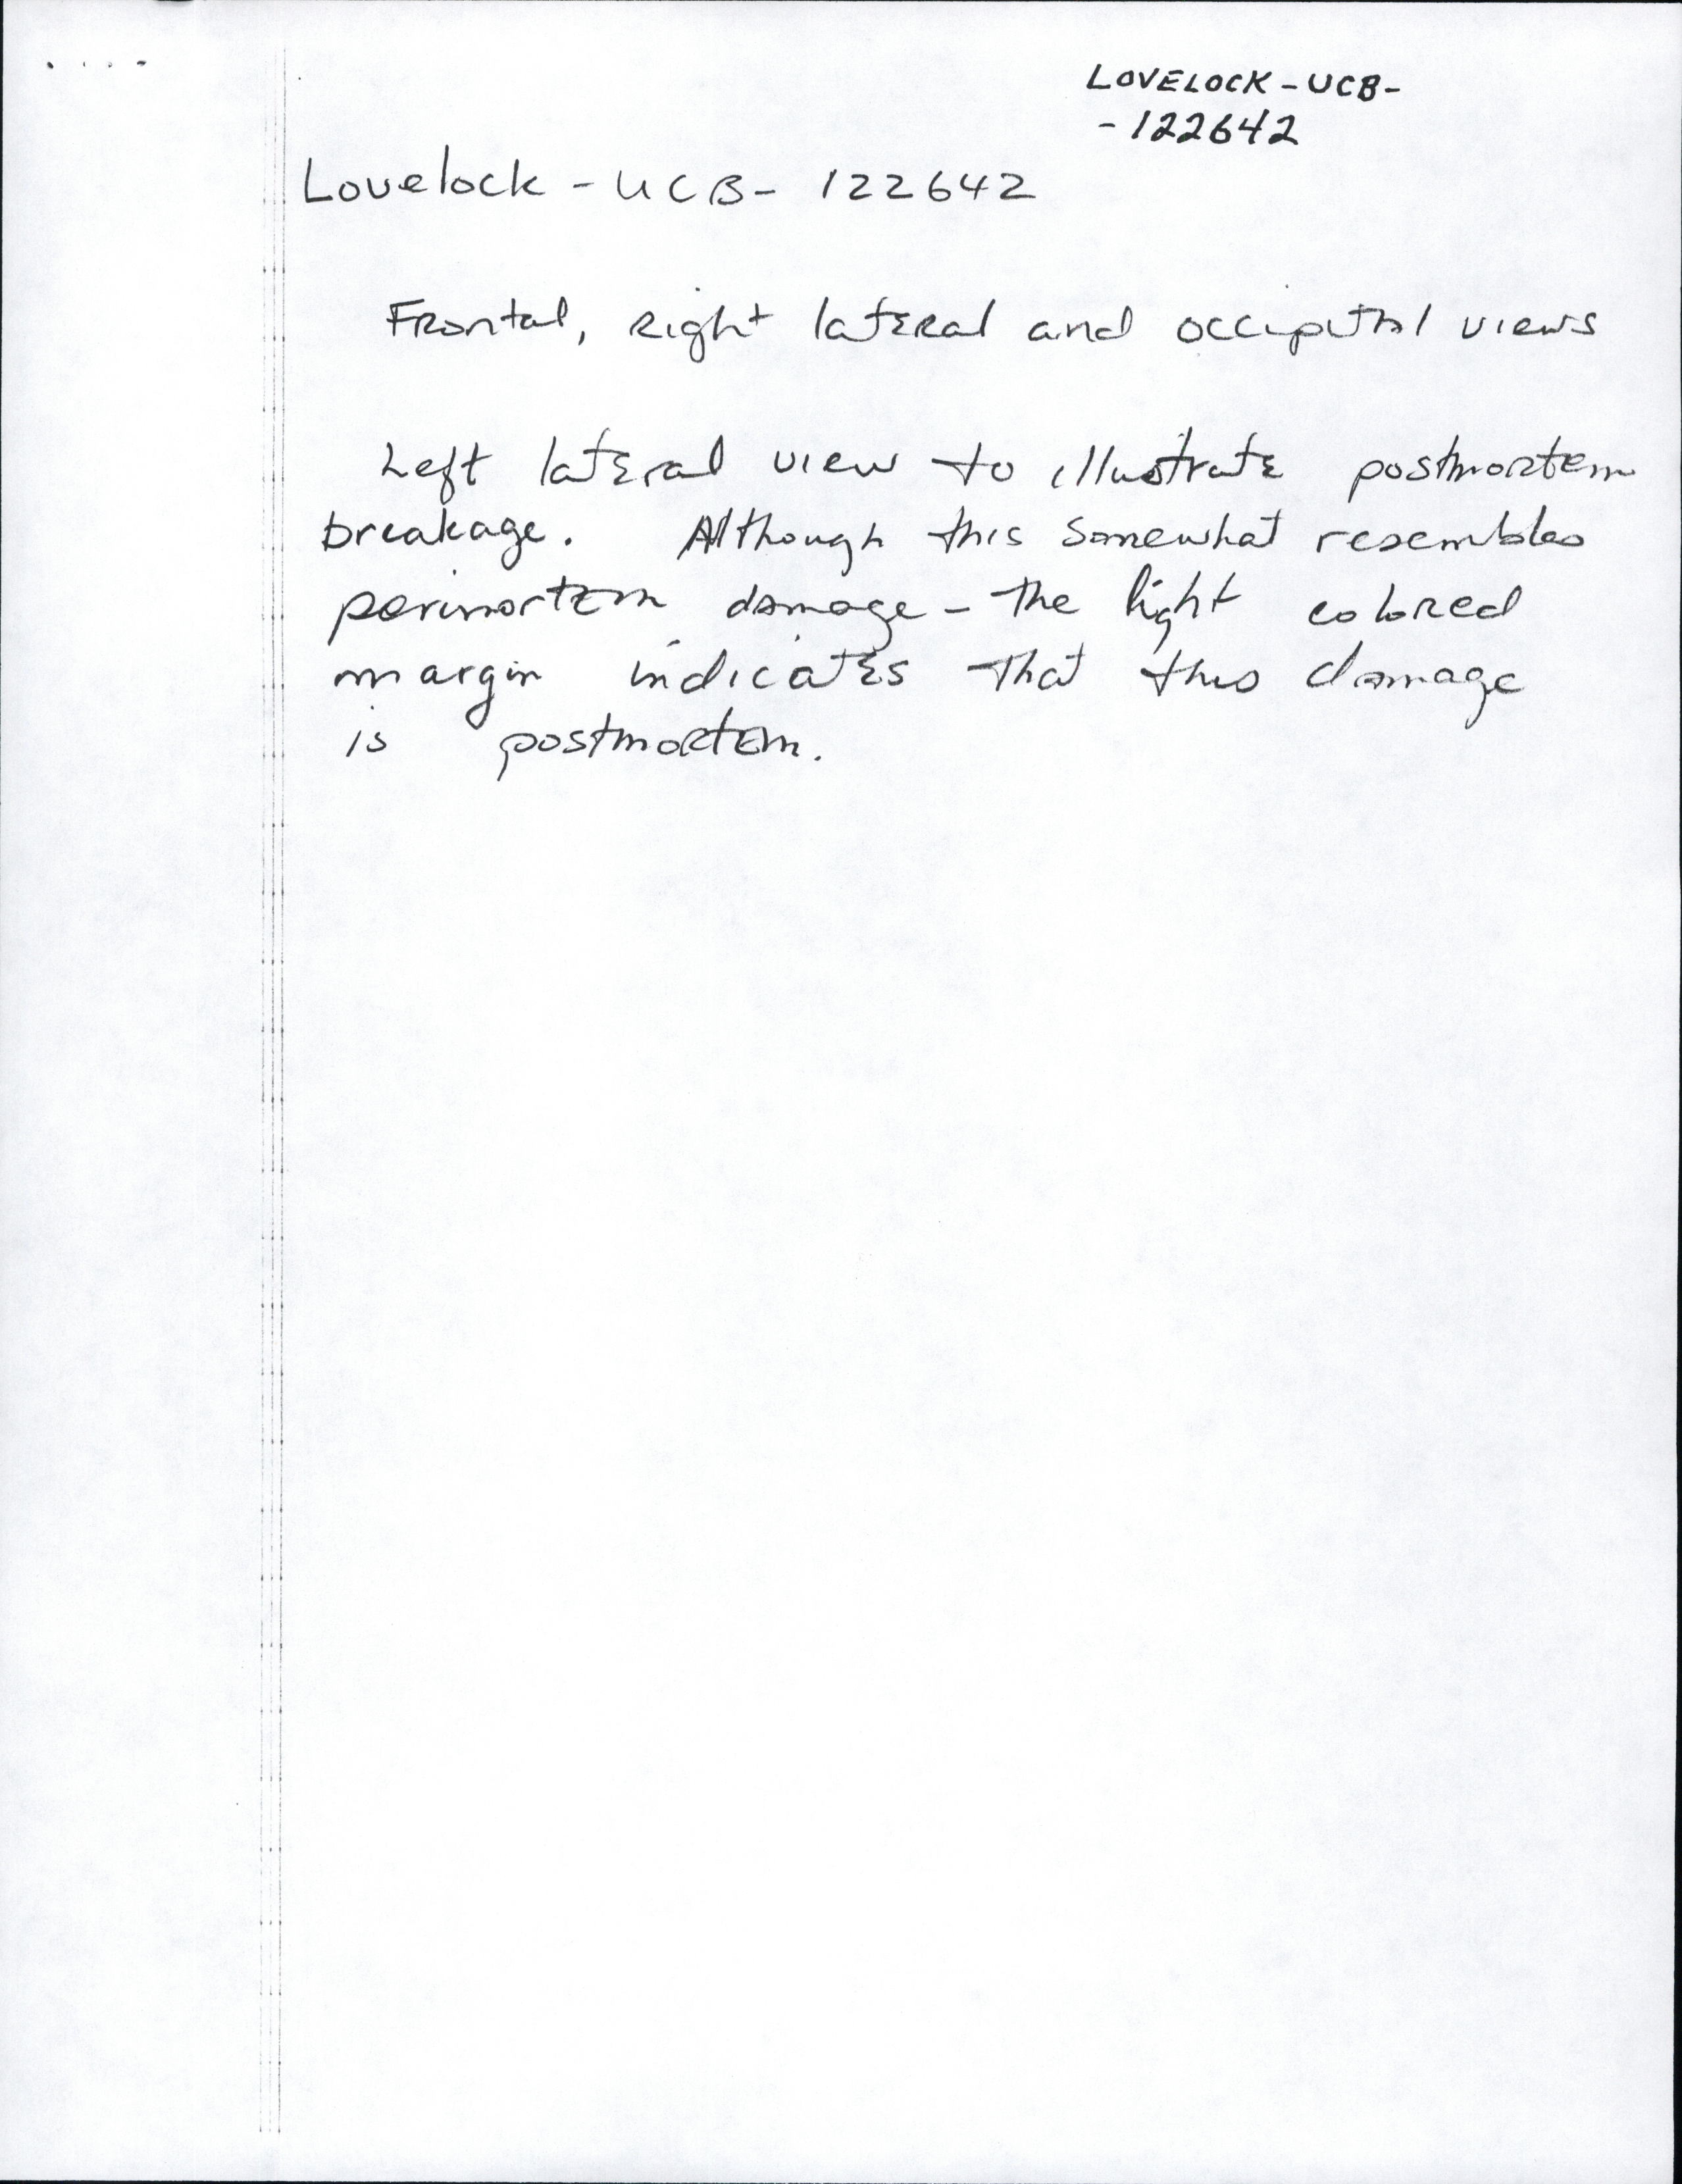 LOVELOCK-UCB-
-122642
Lovelock - UCB- 122642
Frontal, right lateral and occipital views
Left lateral view to illustrate postmortem
breakage. Although this somewhat resembles
perimortem damage - the light colored
margin indicates that this damage
is postmortem.